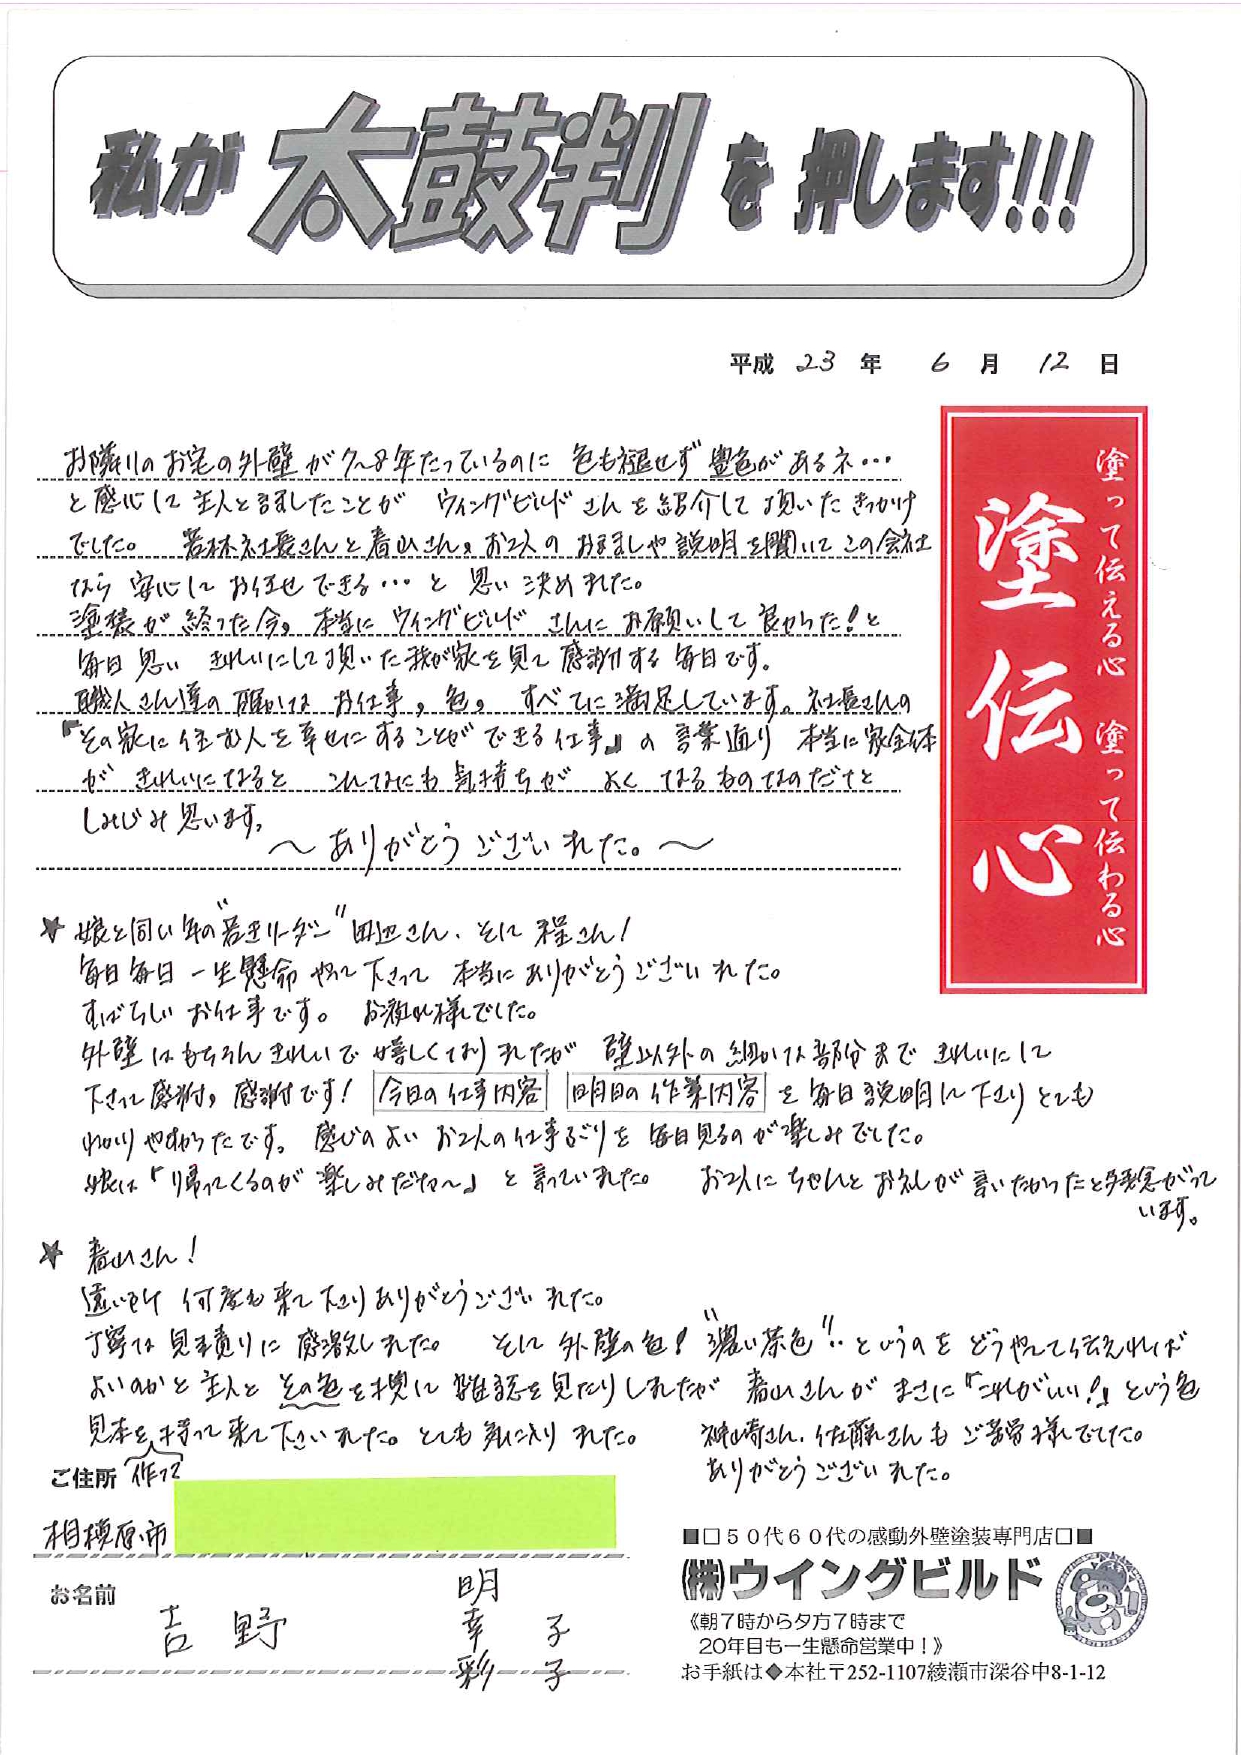 私が太鼓判を押します!!!
平成 23 年 6 月 12 日
お隣りのお宅の外壁が7〜8年たっているのに 色も褪せず 艶がある ネ…
と感心して主人と話したことが ウィングビルドさんを紹介して頂いたきっかけ
でした。 若林社長さんと春山さん、お2人のお話しや説明を聞いてこの会社
なら 安心してお任せできる…と 思い決めました。
塗装が終った今、本当にウィングビルドさんにお願いして良かった!と
毎日思い きれいにして頂いた我が家を見て感謝する毎日です。
職人さん達の確かなお仕事、色、すべてに満足しています。社長さんの
『その家に住む人を幸せにすることができる仕事』の言葉通り 本当に家全体
が きれいになると こんなにも気持ちが よくなるものなのだなと
しみじみ思います。
〜ありがとうございました。〜
塗伝心
塗って伝える心 塗って伝わる心
★ 娘と同い年の“若きリーダー”田辺さん、そして 程さん!
毎日毎日一生懸命やって下さって 本当にありがとうございました。
すばらしいお仕事です。 お疲れ様でした。
外壁はもちろんきれいで嬉しくなりましたが 壁以外の細かな部分まできれいにして
下さって感謝、感謝です! 今日の仕事内容 明日の作業内容 を毎日説明して下さりとても
わかりやすかったです。 感じのよいお2人の仕事ぶりを毎日見るのが楽しみでした。
娘は「帰ってくるのが楽しみだな〜」と言っていました。 お2人にちゃんとお礼が言いたかったと残念がって
います。
★ 春山さん!
遠い所 何度も来て下さりありがとうございました。
丁寧な見積りに感激しました。 そして外壁の色!“濃い茶色”…というのをどうやって伝えれば
よいのかと主人とその色を探して雑誌を見たりしましたが 春山さんがまさに「これがいい!」という色
見本を作って持って来て下さいました。とても気に入りました。
神崎さん、佐藤さんもご苦労様でした。
ありがとうございました。
ご住所
相模原市
お名前
吉野 明
幸子
彩子
■□50代60代の感動外壁塗装専門店□■
㈱ウイングビルド
《朝7時から夕方7時まで
20年目も一生懸命営業中!》
お手紙は◆本社〒252-1107綾瀬市深谷中8-1-12